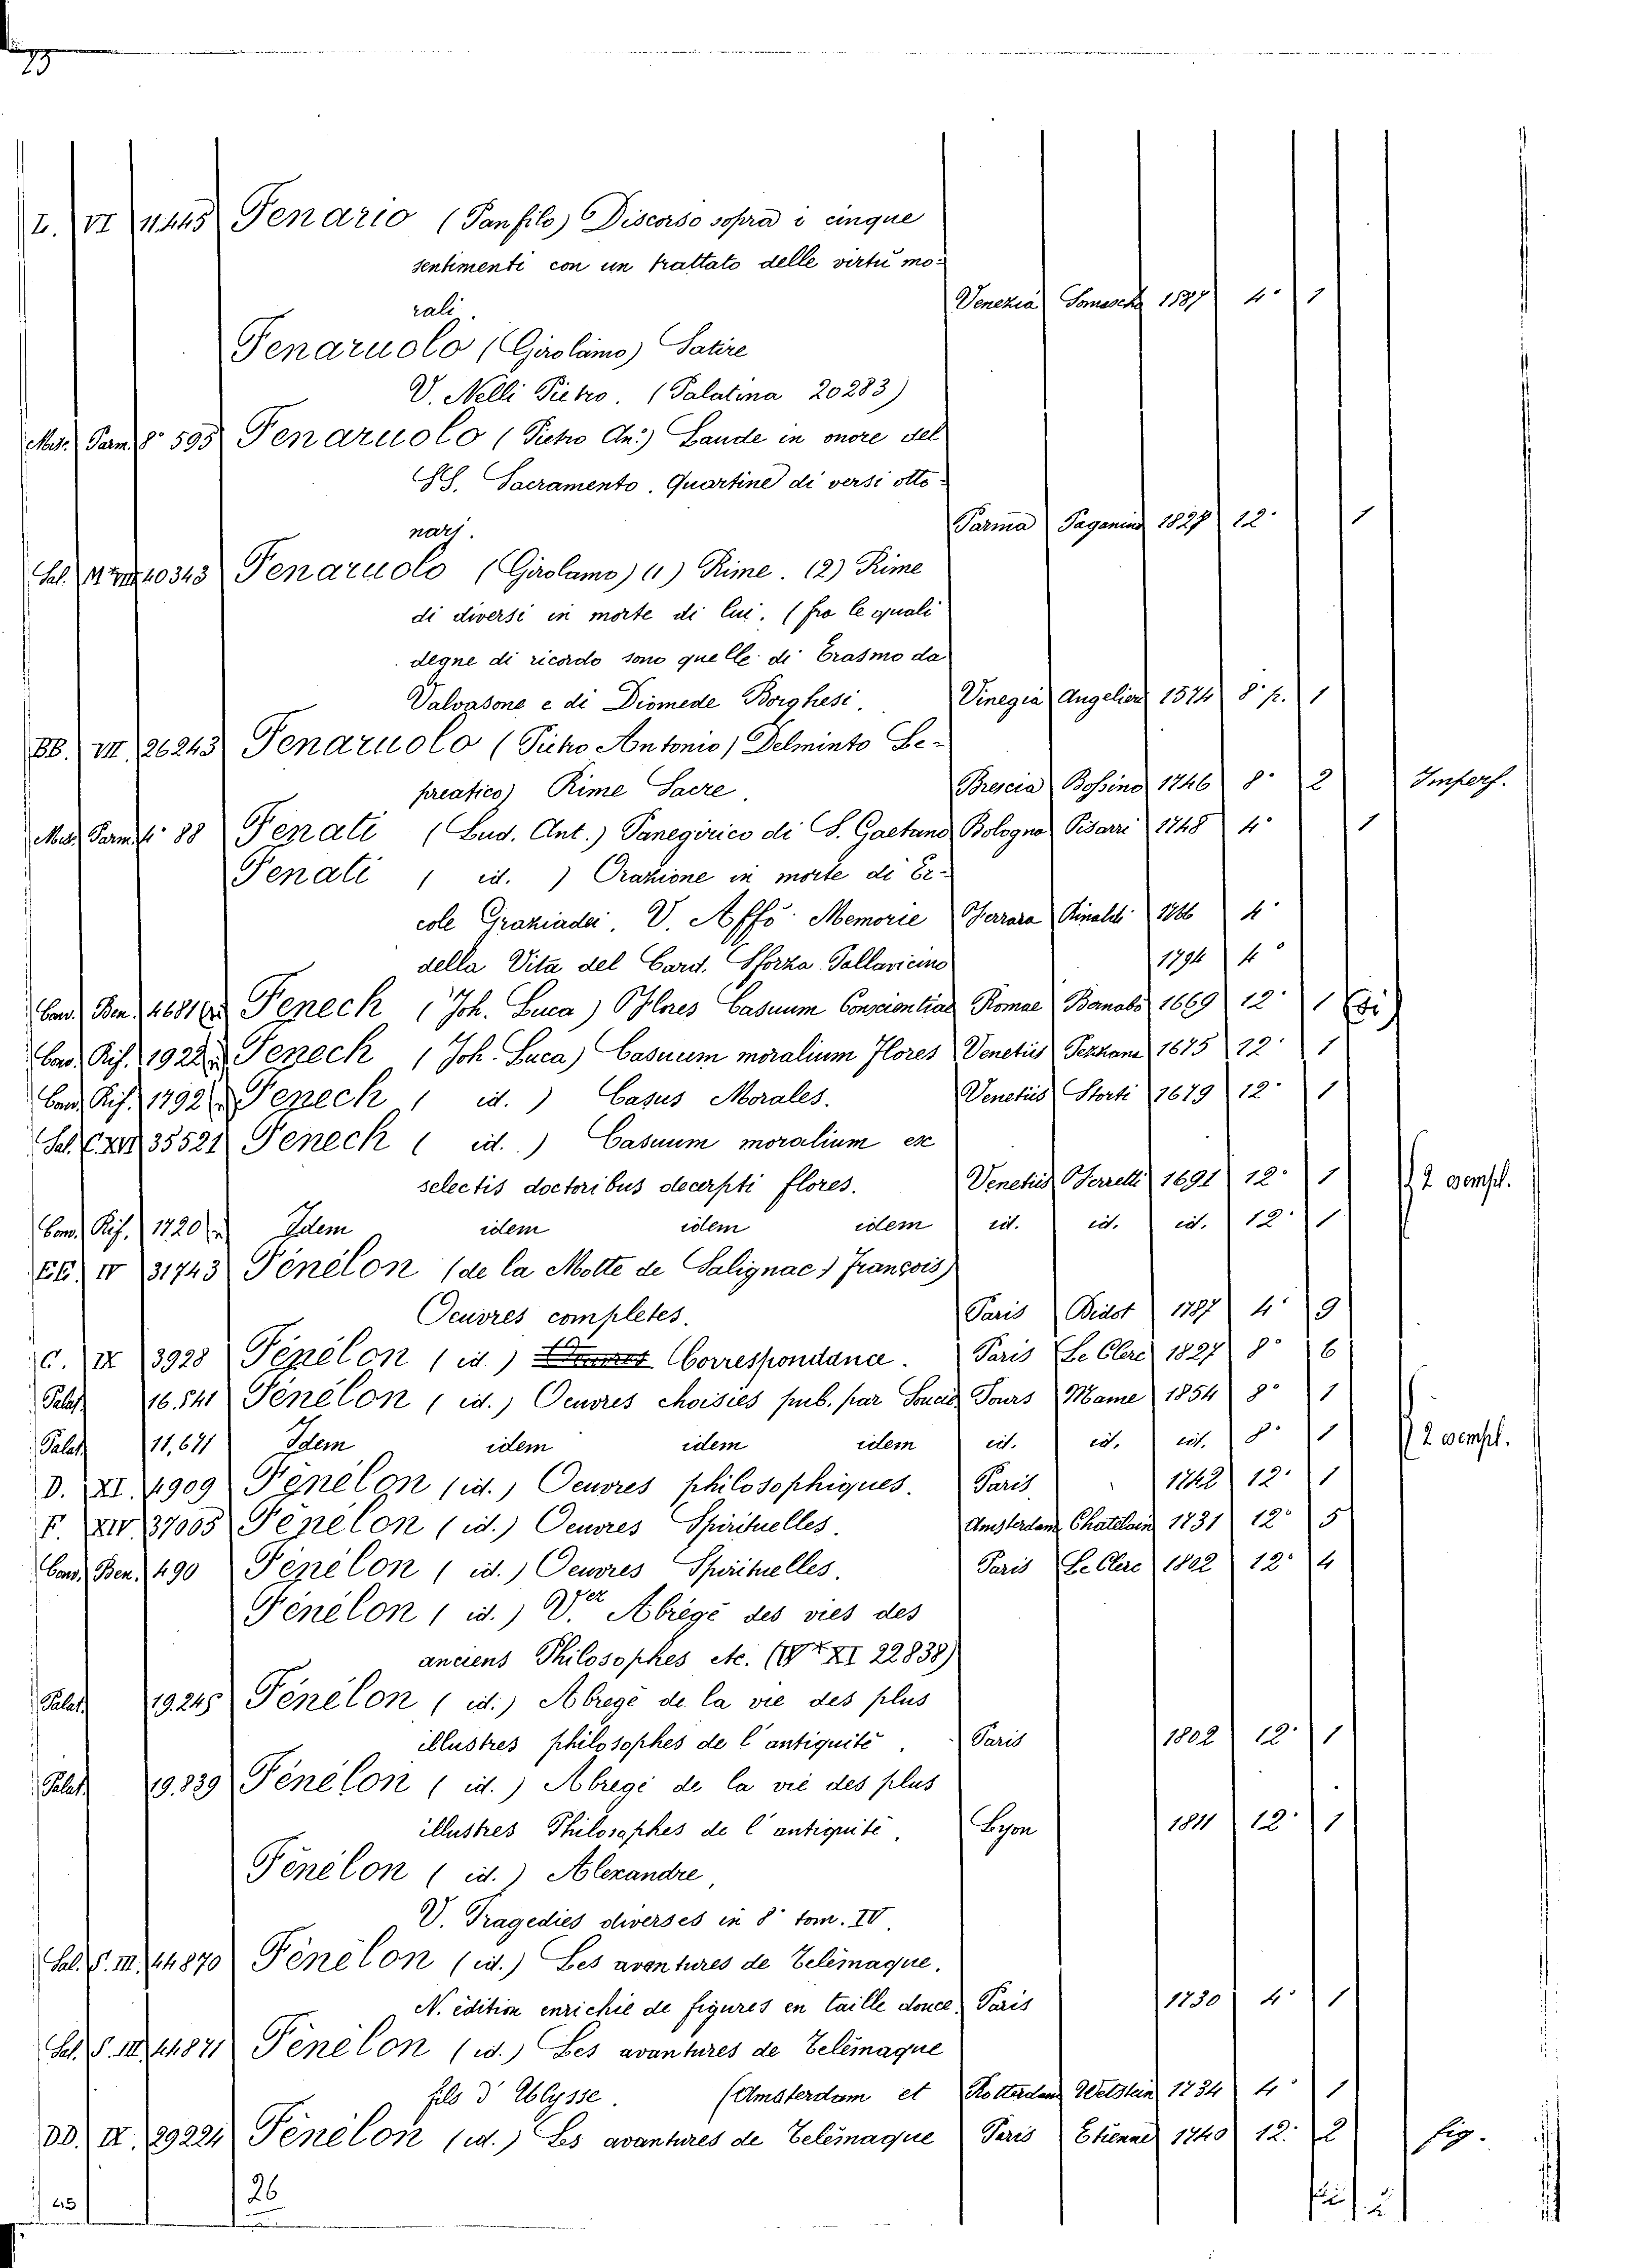 L. VI 11445 Fenario (Panfilo) Discorso sopra i cinque
sentimenti con un trattato delle virtù mo-
rali. Venezia Somascho 1587 4° 1
Fenaruolo (Girolamo) Satire
V. Nelli Pietro. (Palatina 20283)
Misc. Parm. 8° 595 Fenaruolo (Pietro An:) Laude in onore del
SS. Sacramento. Quartine di versi otto-
narj. Parma Paganino 1827 12° 1
Sal. 10343 Fenaruolo (Girolamo) (1) Rime. (2) Rime
di diversi in morte di lui. (fra le quali
degne di ricordo sono quelle di Erasmo da
Valvasone e di Diomede Borghesi. Vinegia Angelieri 1574 8° p. 1
BB. VII. 26243 Fenaruolo (Pietro Antonio) Delminto Le-
preatico) Rime Sacre. Brescia Bossino 1746 8° 2 Imperf.
Misc. Parm. 4° 88 Fenati (Lud. Ant.) Panegirico di S. Gaetano Bologna Pisarri 1748 4° 1
Fenati ( id. ) Orazione in morte di Er-
cole Graziadei. V. Affò. Memorie Ferrara Rinaldi 1786 4°
della Vita del Card. Sforza Pallavicino 1794 4°
Conv. Ben. 4681 Feneck (Joh. Luca) Flores Casuum Conscientiae Romae Barnabò 1669 12° 1
Conv. Rif. 1922 Feneck (Joh. Luca) Casuum moralium Flores Venetiis Pezzana 1675 12° 1
Conv. Rif. 1792 Feneck ( id. ) Casus Morales. Venetiis Storti 1679 12° 1
Sal. C. XVI 35521 Feneck ( id. ) Casuum moralium ex
selectis doctoribus decerpti flores. Venetiis Ferretti 1691 12° 1 2 esempl.
Conv. Rif. 1720 Idem idem idem idem id. id. id. 12° 1
EE. IV 31743 Fénélon (de la Motte de Salignac) François)
Oeuvres completes. Paris Didot 1787 4° 9
C. IX 3928 Fénélon (id.) Correspondance. Paris Le Clere 1827 8° 6
Palat. 16.541 Fénélon (id.) Oeuvres choisies pub. par Tours Mame 1854 8° 1
Palat. 11,671 Idem idem idem idem id. id. id. 8° 1 2 esempl.
D. XI. 4909 Fénélon (id.) Oeuvres philosophiques. Paris 1742 12° 1
F. XIV. 37005 Fénélon (id.) Oeuvres Spirituelles. Amsterdam Chatelain 1731 12° 5
Conv. Ben. 490 Fénélon (id.) Oeuvres Spirituelles. Paris Le Clere 1822 12° 4
Fénélon (id.) V.ez Abrégé des vies des
anciens Philosophes etc. (V XI 22838)
Palat. 19.245 Fénélon (id.) Abregé de la vie des plus
illustres philosophes de l'antiquité. Paris 1802 12° 1
Palat. 19.839 Fénélon (id.) Abregé de la vie des plus
illustres Philosophes de l'antiquité, Lyon 1811 12° 1
Fénélon (id.) Alexandre,
V. Tragedies diverses in 8° tom. IV
Sal. S. III. 44870 Fénélon (id.) Les avantures de Telémaque,
N. édition enrichie de figures en taille douce Paris 1730 4° 1
Sal. S. III. 44871 Fénélon (id.) Les avantures de Telémaque
fils d'Ulysse. (Amsterdam et Rotterdam Wetstein 1734 4° 1
DD. IX. 29221 Fénélon (id.) Les avantures de Telémaque Paris Etienne 1740 12° 2 fig.
45 26